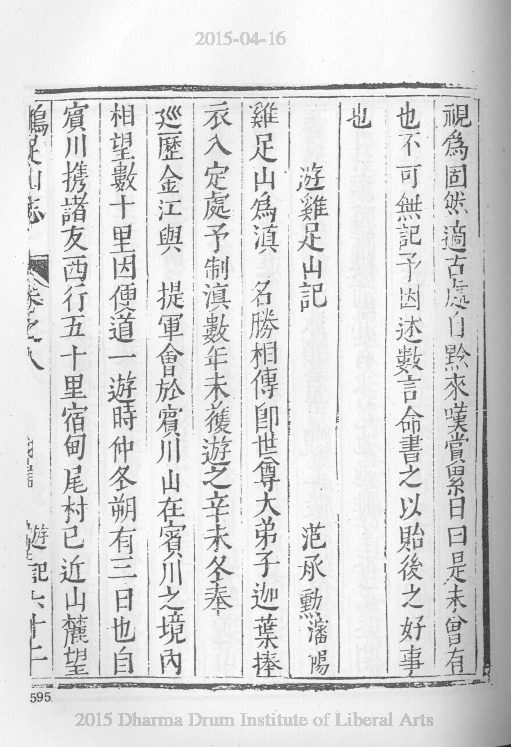 2015-04-16
視爲固然適古處自黔來嘆賞累日曰是未曾有
也不可無記予因述數言命書之以貽後之好事
也
遊雞足山記 范承勳瀋陽
雞足山爲滇 名勝相傳卽世尊大弟子迦葉捧
衣入定處予制滇數年未獲遊之辛未冬奉
廵歷金江與 提軍會於賓川山在賓川之境內
相望數十里因便道一遊時仲冬朔有三日也自
賓川携諸友西行五十里宿甸尾村已近山麓望
鷄足山志 卷之八 遊記六十二
595
2015 Dharma Drum Institute of Liberal Arts